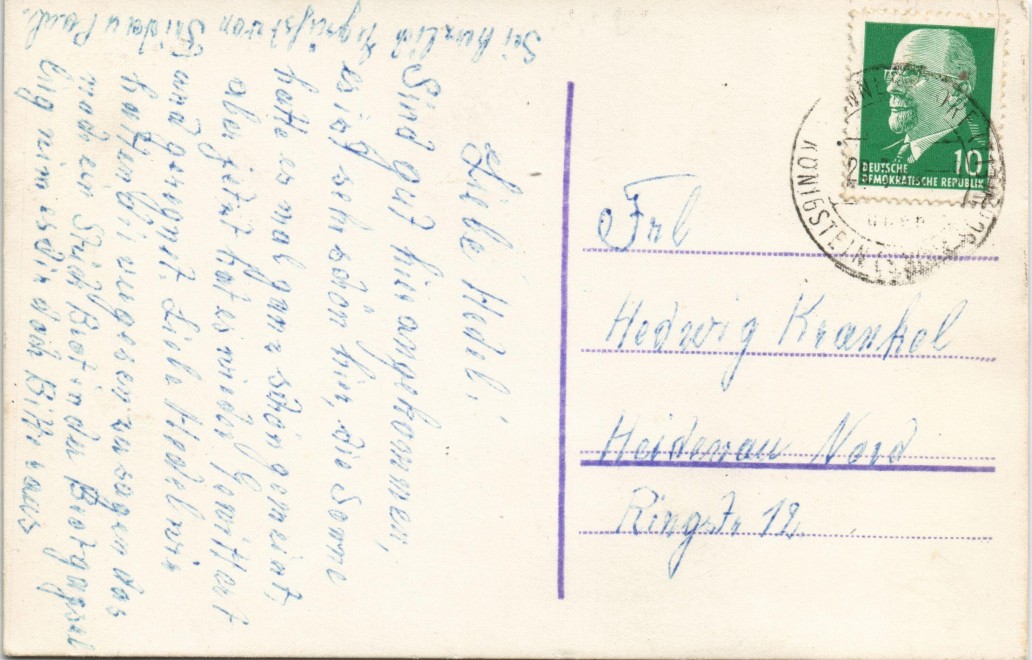 Liebe Hedel!
Sind gut hier angekommen,
es ist sehr schön hier, die Sonne
hate es mal ganz schön gemeint,
aber jetzt hat es wieder Gewittert
und geregnet. Liebe Hedel wir
haben vergesen zu sagen das
noch ein Stück Brot in der Brotkapsel
nim es dir doch Bitte raus
Sei herzlich gegrüßt von Frida u Paul.
Frl
Hedwig Krankel
Heidenau Nord
Ringstr 12.
DEUTSCHE
DEMOKRATISCHE REPUBLIK
10
KÖNIGSTEIN